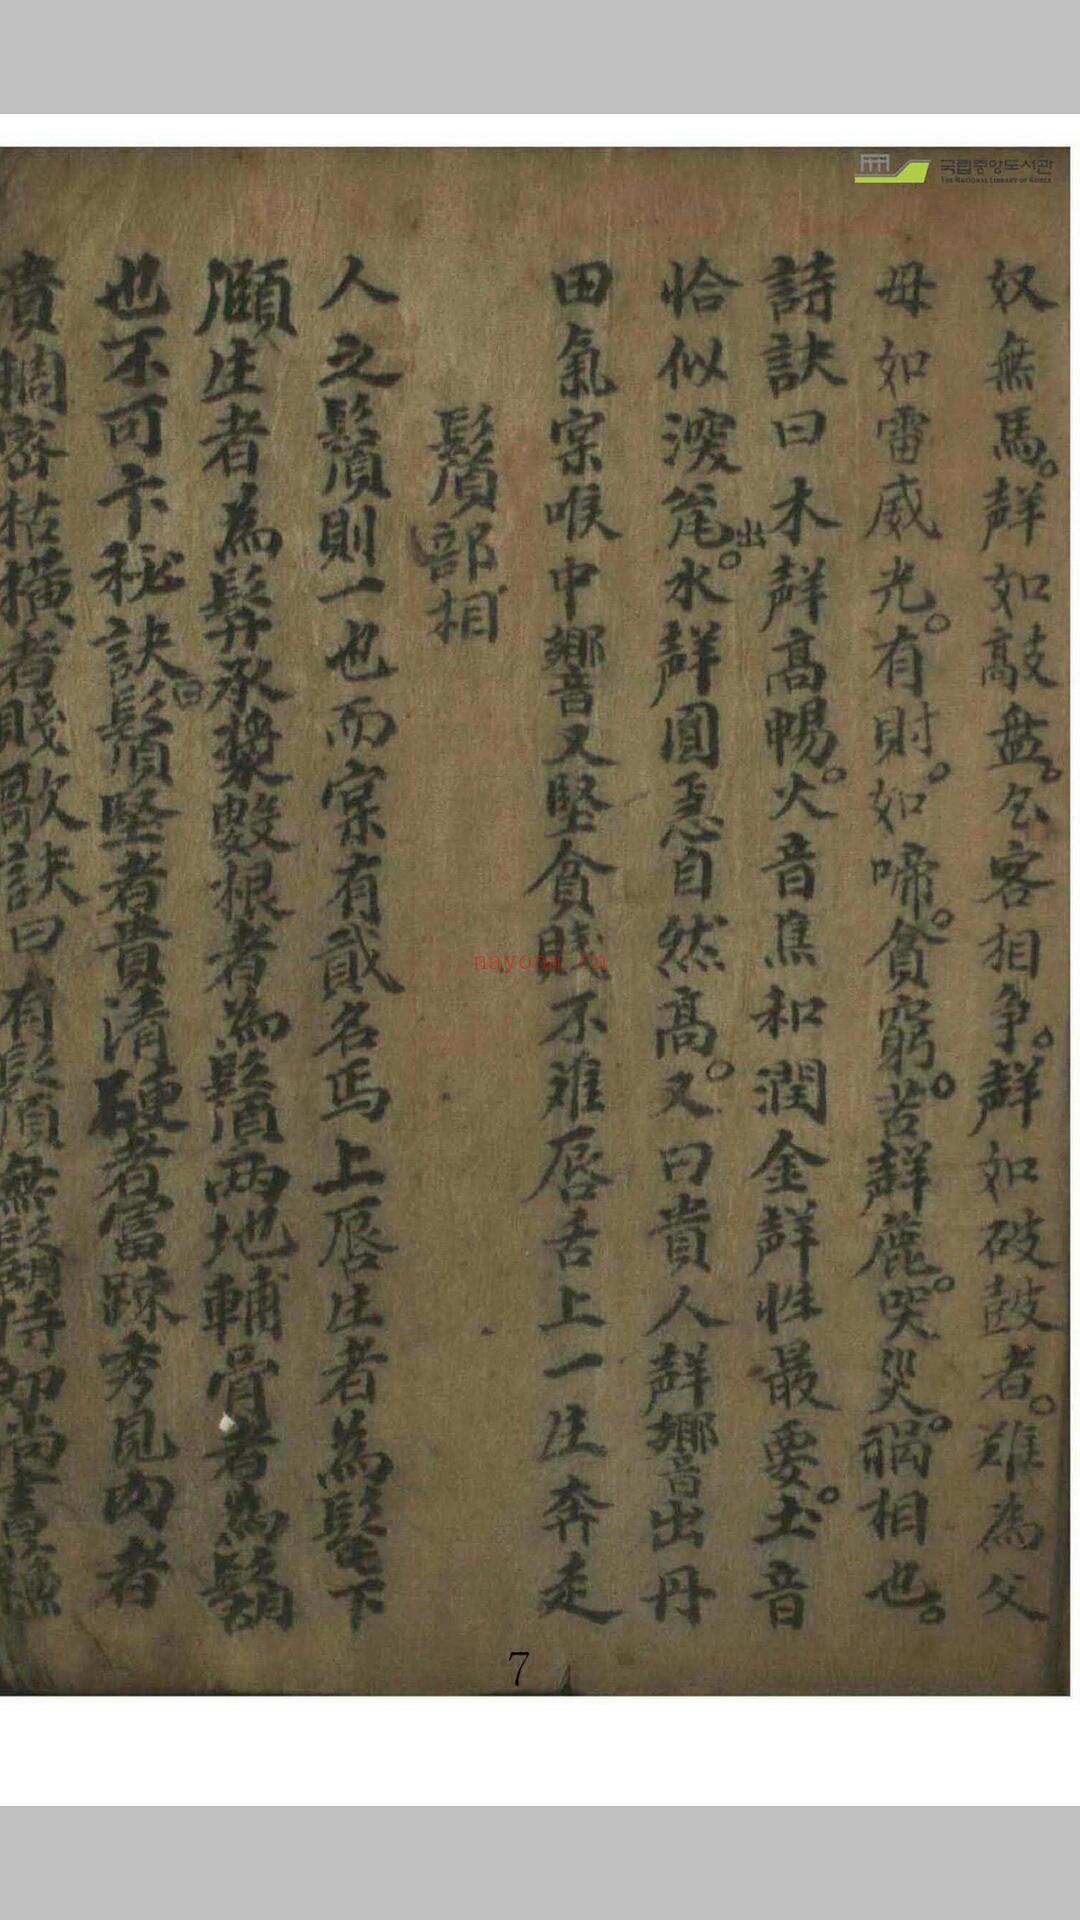 국립중앙도서관
THE NATIONAL LIBRARY OF KOREA
奴無馬。聲如敲盘。公客相爭。聲如破鼓者。難為父
母如雷威光。有財。如啼。貧窮。苦聲麁。哭災。禍相也。
詩訣曰木聲高暢。火音焦和潤金聲性最要。土音
恰似瀀瓮出。水聲圓急自然高。又曰貴人聲響出丹
田氣宲喉中響又堅貧賤不難唇舌上一生奔走
鬚部相
人之鬚則一也而宲有貳名焉上唇生者為髦下
頤生者為髯承漿數根者為鬚兩地輔骨者為鬍
也不可卞秘訣曰鬚堅者貴清硬者富踈秀見肉者
貴稠密枯橫者賤歌訣曰有鬚無鬍
nayona.cn
7